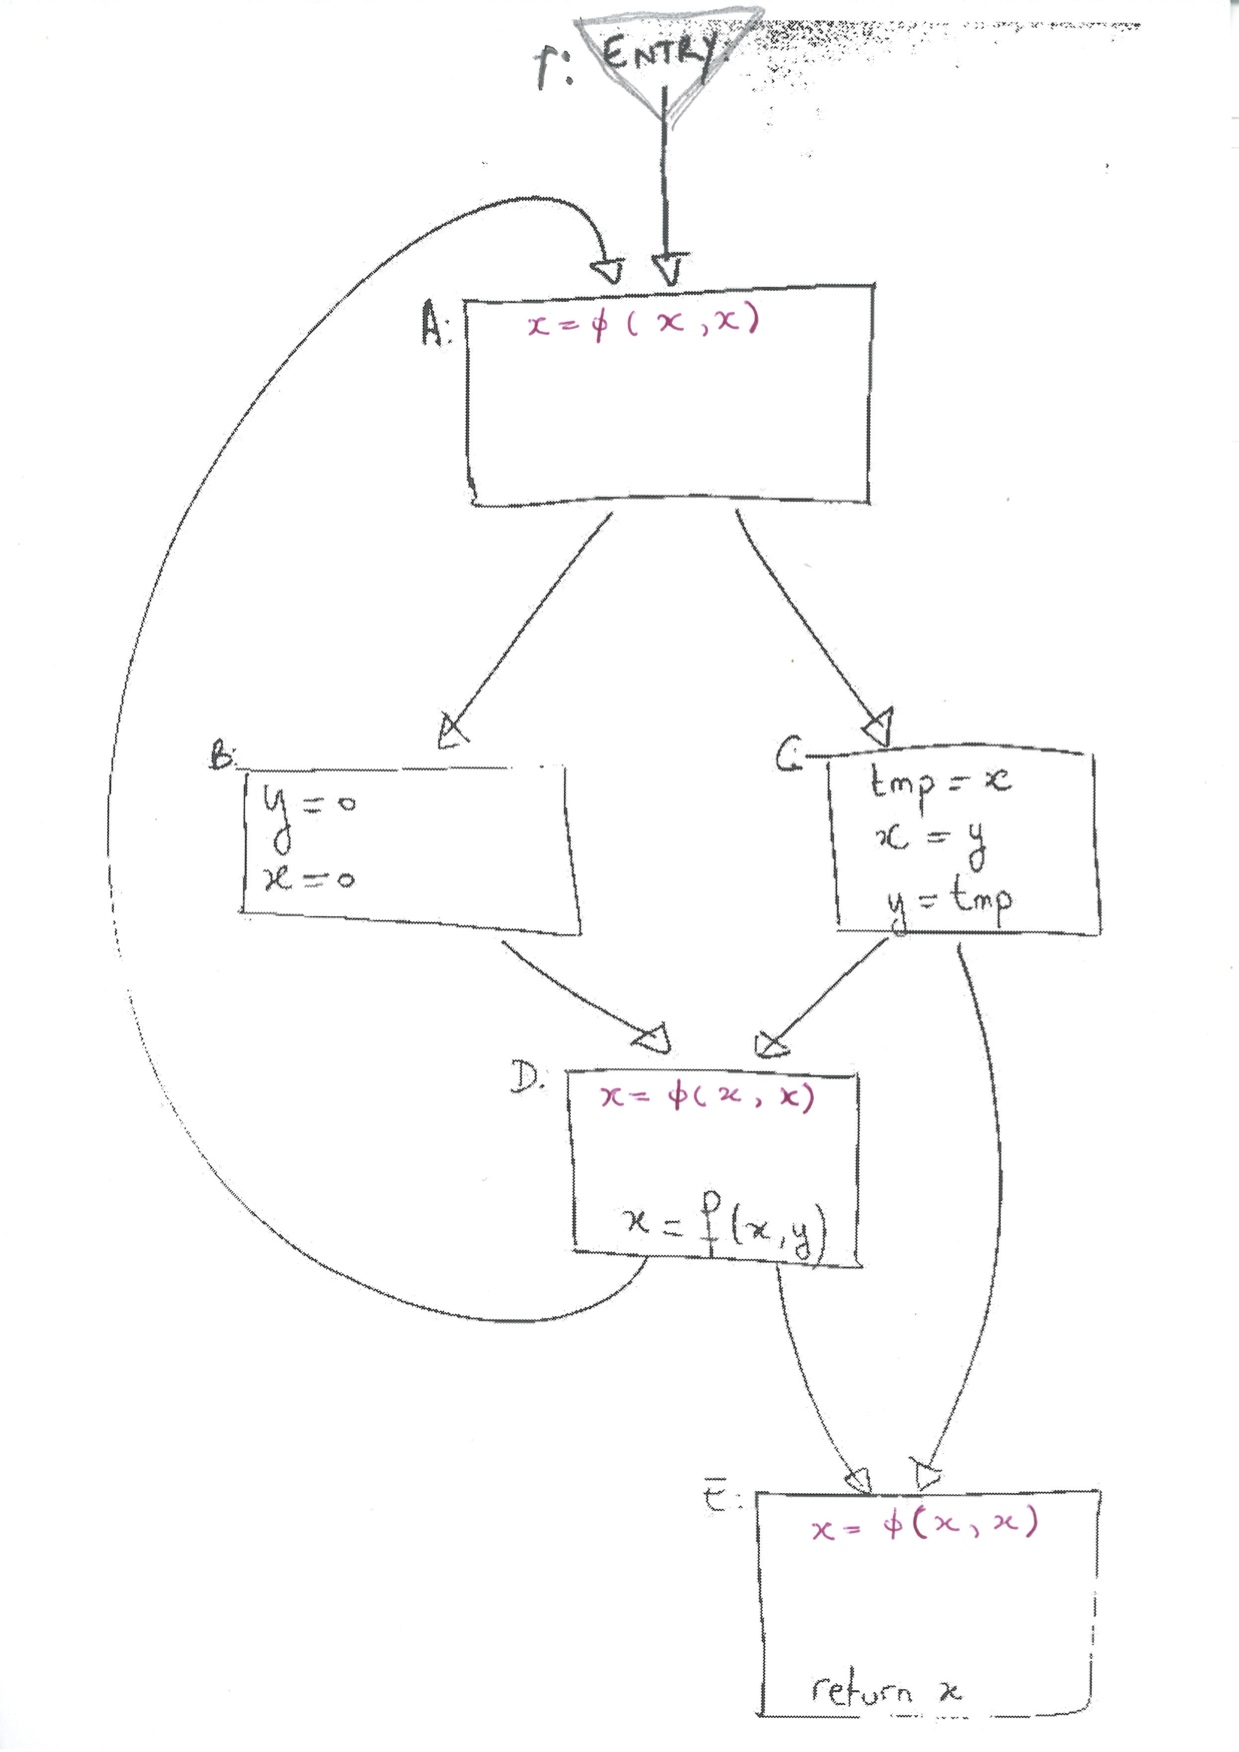 r: ENTRY
A: x = ϕ ( x , x )
B:
y = 0
x = 0
C:
tmp = x
x = y
y = tmp
D.
x = ϕ ( x , x )
x = f (x, y)
E:
x = ϕ ( x , x )
return x